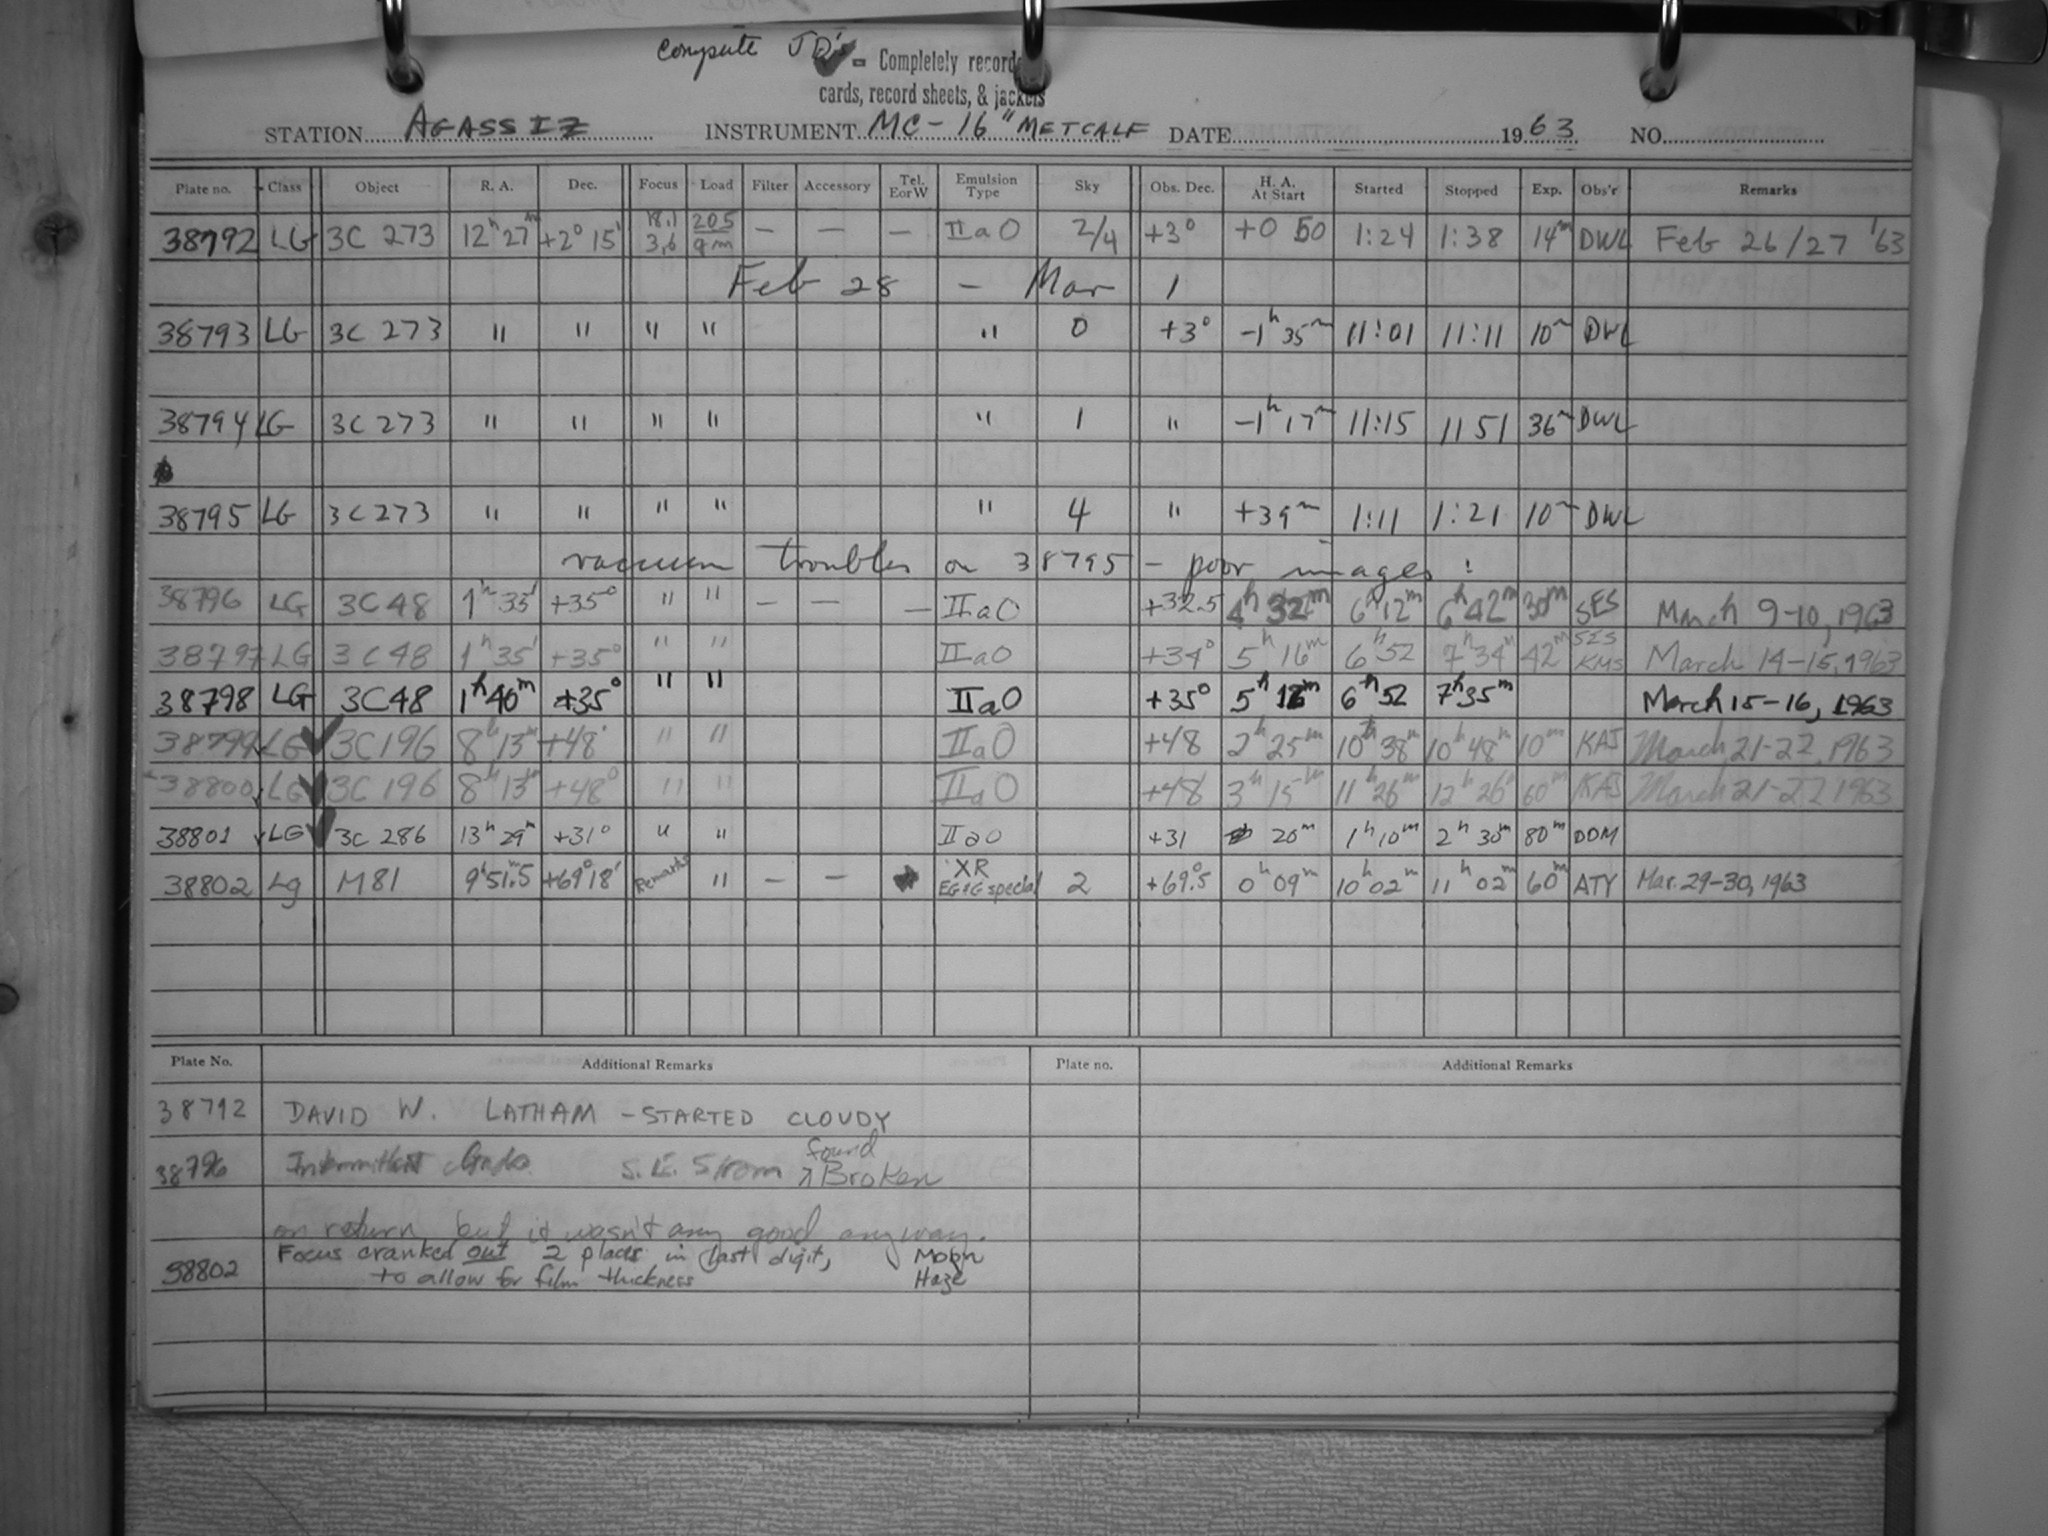 Compute JD's - Completely record
cards, record sheets, & jackets
STATION AGASSIZ INSTRUMENT MC-16" METCALF DATE 1963 NO.
Plate no. Class Object R. A. Dec. Focus Load Filter Accessory Tel. E or W Emulsion Type Sky Obs. Dec. H. A. At Start Started Stopped Exp. Obs'r Remarks
38792 LG 3C 273 12h 27m +2° 15' 18.1 3.6 205 gm — — — IIaO 2/4 +3° +0 50 1:24 1:38 14m DWL Feb 26/27 '63
Feb 28 — Mar 1
38793 LG 3C 273 " " " " " 0 +3° -1h 35m 11:01 11:11 10m DWL
38794 LG 3C 273 " " " " " 1 " -1h 17m 11:15 11 51 36m DWL
38795 LG 3C 273 " " " " " 4 " +39m 1:11 1:21 10m DWL
vacuum troubles on 38795 - poor images!
38796 LG 3C 48 1h 35' +35° " " — — — IIaO +32.5 4h 32m 6h 12m 6h 42m 30m SES March 9-10, 1963
38797 LG 3C 48 1h 35' +35° " " IIaO +34° 5h 16m 6h 52 7h 34m 42m SES KMS March 14-15, 1963
38798 LG 3C48 1h 40m +35° " " IIaO +35° 5h 6h 52 7h 35m March 15-16, 1963
38799 LG 3C196 8h 13m +48° " " IIaO +48 2h 25m 10h 38m 10h 48m 10m KAJ March 21-22, 1963
38800 LG 3C 196 8h 13m +48° " " IIaO +48 3h 15m 11h 26m 12h 26m 60m KAJ March 21-22 1963
38801 LG 3C 286 13h 29m +31° " " IIaO +31 20m 1h 10m 2h 30m 80m DDM
38802 Lg M81 9h 51m.5 +69° 18' Remarks " — — XR EG&G special 2 +69°.5 0h 09m 10h 02m 11h 02m 60m ATY Mar. 29-30, 1963
Plate No. Additional Remarks Plate no. Additional Remarks
38792 DAVID W. LATHAM - STARTED CLOUDY
38796 Intermittent Clouds. S. E. Strom found Broken
on return but it wasn't any good anyway.
38802 Focus cranked out 2 places in last digit, Moon
to allow for film thickness Haze